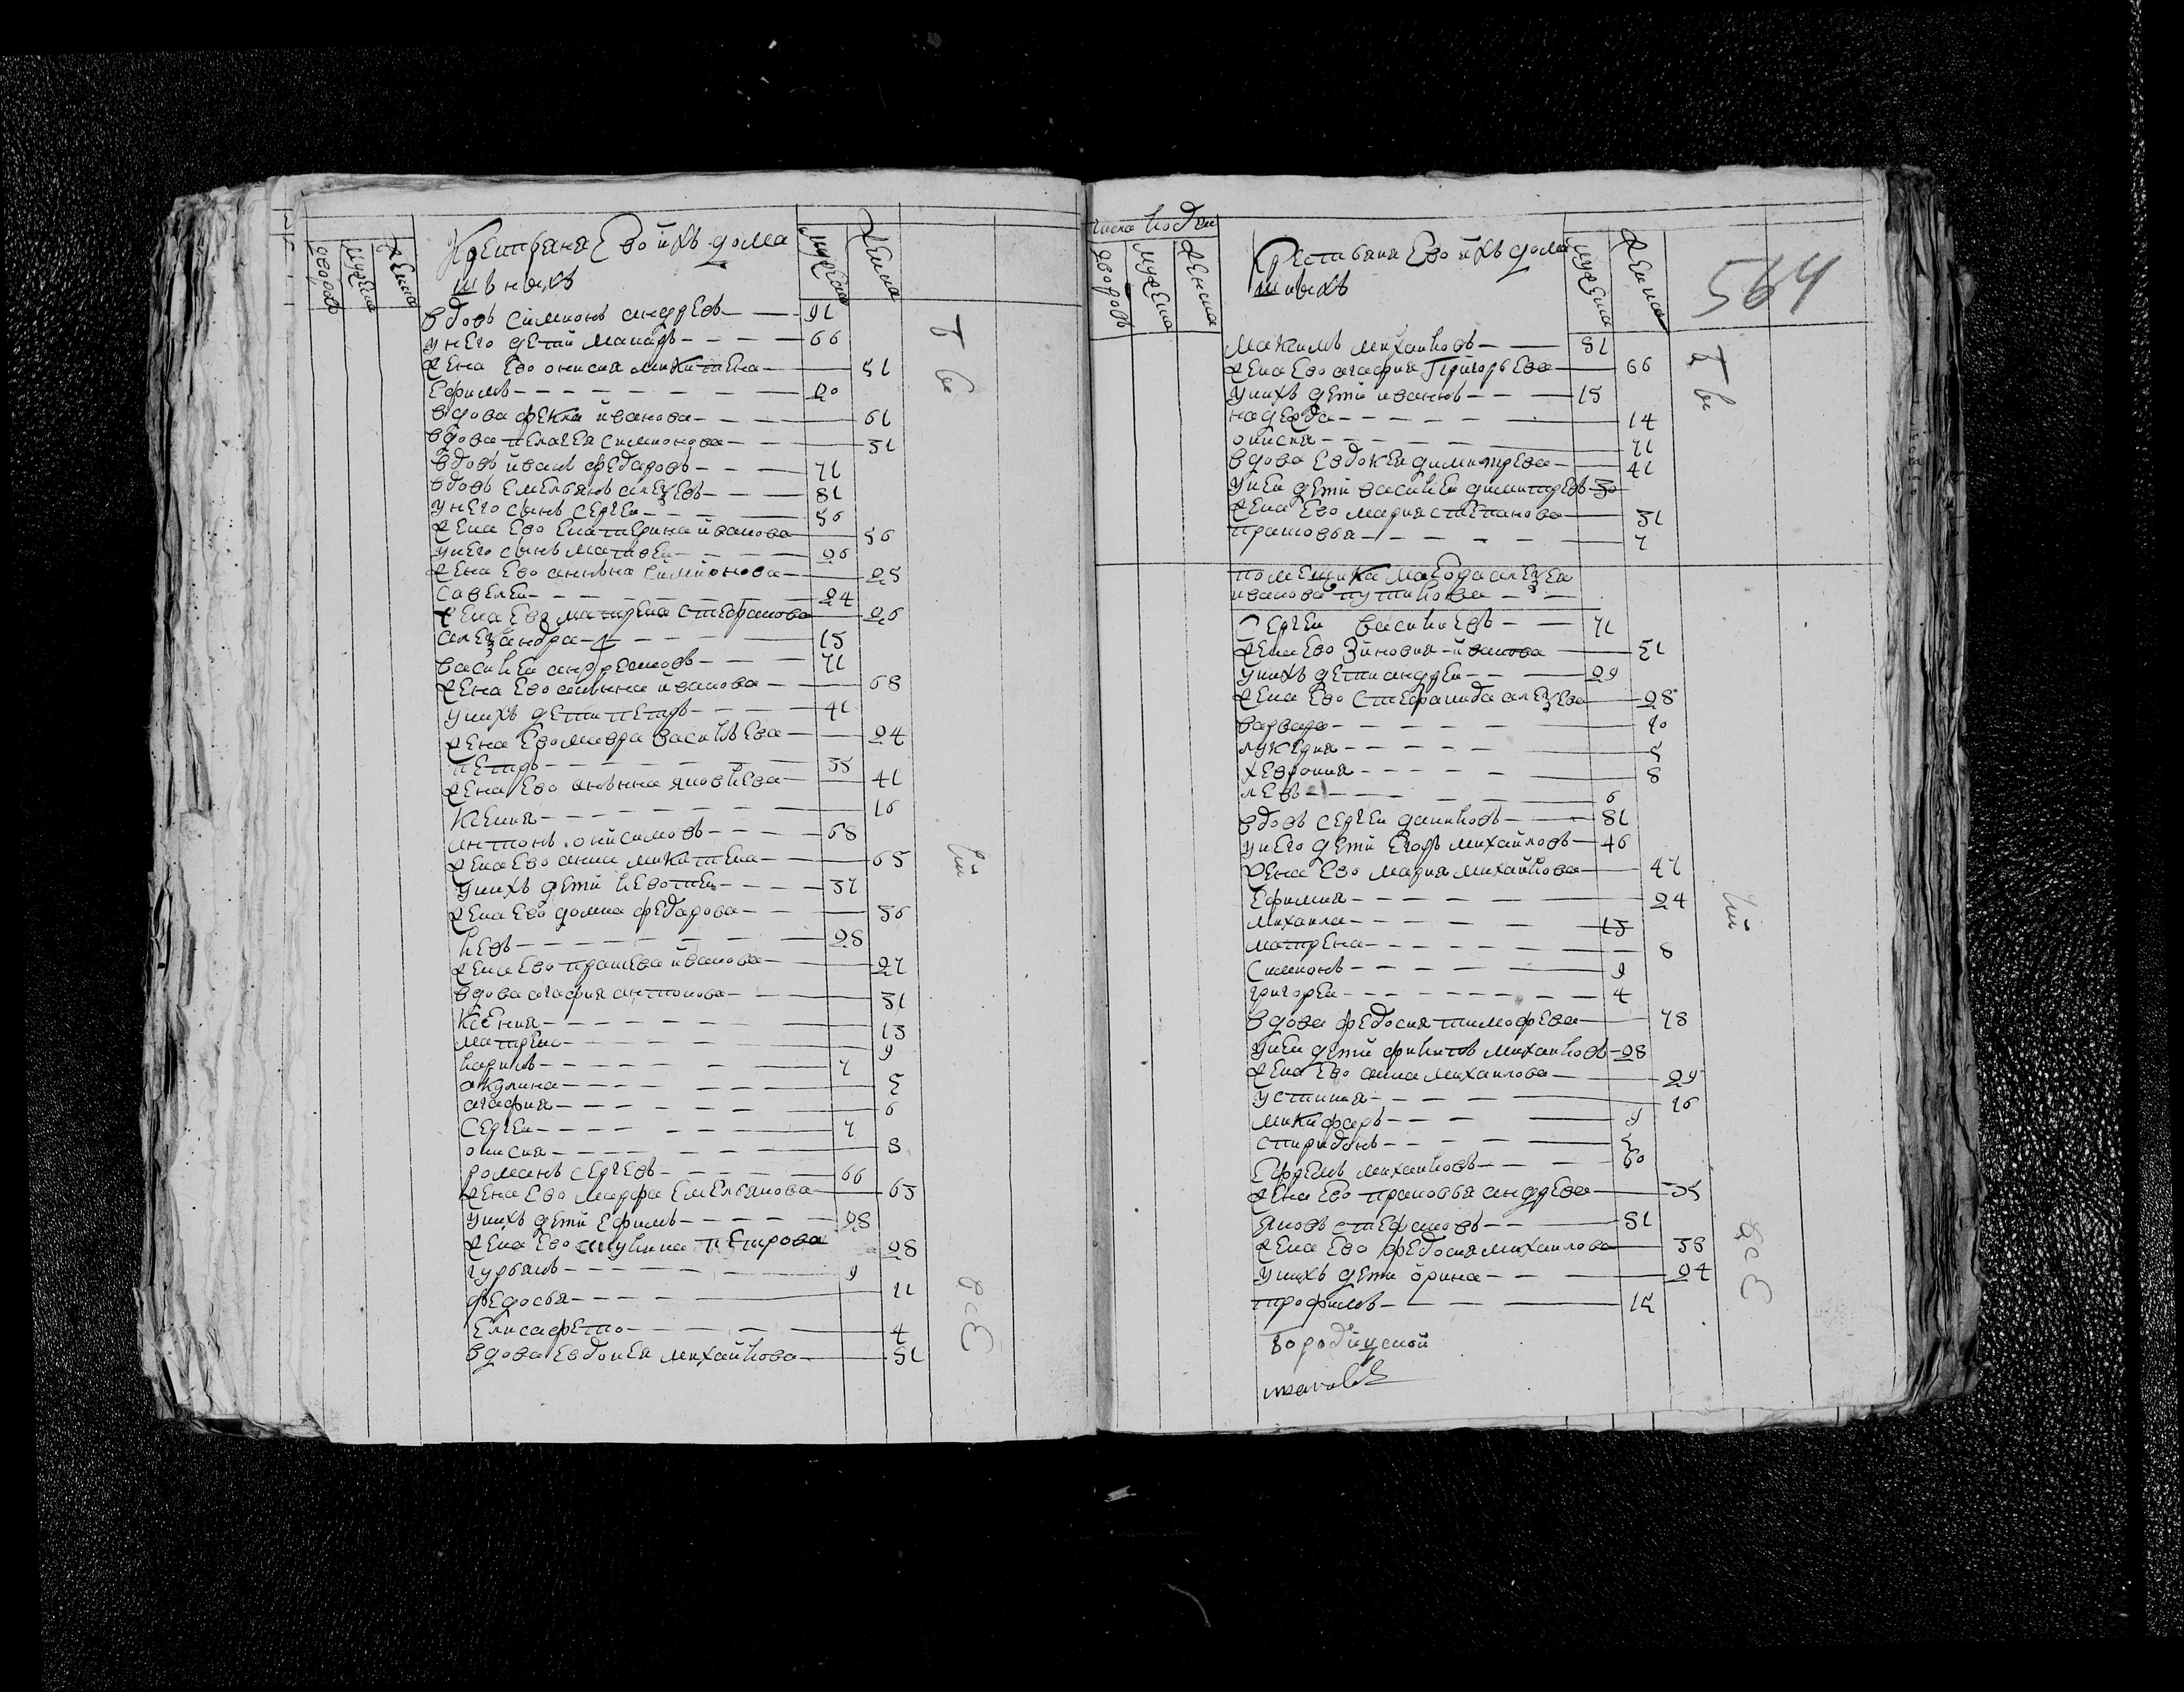 дворовъ
мужеска
женска
Крестьяня Ево и ихъ дома
шныхъ
мужеска
женска
вдовъ симионъ андреевъ 91
у него дети макаръ 66
жена Ево онисия микитена 51
Ефимъ 20
вдова фекла иванова 61
вдова пелагея симионова 31
вдовъ иванъ федаровъ 71
вдовъ Емельянъ алеѯевъ 81
у него сынъ сергеи 56
жена Ево Екатерина иванова 56
у него сынъ матвеи 26
жена Ево аньна симионова 25
савелеи 24
жена Ево матрена стефанова 26
алеѯандра 15
василеи андреяновъ 71
жена Ево аньнна иванова 68
у нихъ дети петръ 41
жена Ево мавра васильева 24
петръ 35
жена Ево аньнна яковлева 41
ксения 16
антонъ онисимовъ 68
жена Ево анна микитена 65
у нихъ дети левонтеи 37
жена Ево домна федарова 36
левъ 28
жена Ево прасковя иванова 27
вдова агафия антонова 31
ксения 13
матрена 9
карипъ 7
акулина 5
агафия 6
Сергеи 7
онисия 8
романъ сергеевъ 66
жена Ево марфа Емельянова 63
у нихъ дети Ефимъ 28
жена Ево акулина петрова 28
гурьянъ 9
федосья 11
Елисафета 4
вдова Евдокея михаилова 51
число людеи
дворовъ
мужеска
женска
Крестьяня Ево и ихъ дома
шныхъ
мужеска
женска
564
максимъ михаиловъ 81
жена Ево агафия Григорьева 66
у нихъ дети иванъ 15
надежда 14
онисия 11
вдова Евдокея димитрева 41
у неи дети василеи димитревъ 30
жена Ево мария степанова 31
прасковья 7
помещика маеора алеѯея
иванова путилова
Сергеи васильевъ 71
жена Ево Зиновия иванова 51
у нихъ дети андреи 29
жена Ево стефанида алеѯева 28
варвара 10
лукерия 5
хеврония 8
левъ 6
вдовъ сергеи даниловъ 81
у него дети Егоръ михаиловъ 46
жена Ево мария михаилова 47
Ефимия 24
михаила 13
матрена 8
симионъ 9
григореи 4
вдова федосия тимофева 78
у неи дети филипъ михаиловъ 28
жена Ево анна михаилова 29
устиния 16
микифаръ 9
спиридонъ 5
Ефремъ михаиловъ 60
жена Ево прасковья андрева 35
яковъ стефановъ 51
жена Ево федосия михаилова 38
у нихъ дети орина 24
трофимъ 15
Бородицкой